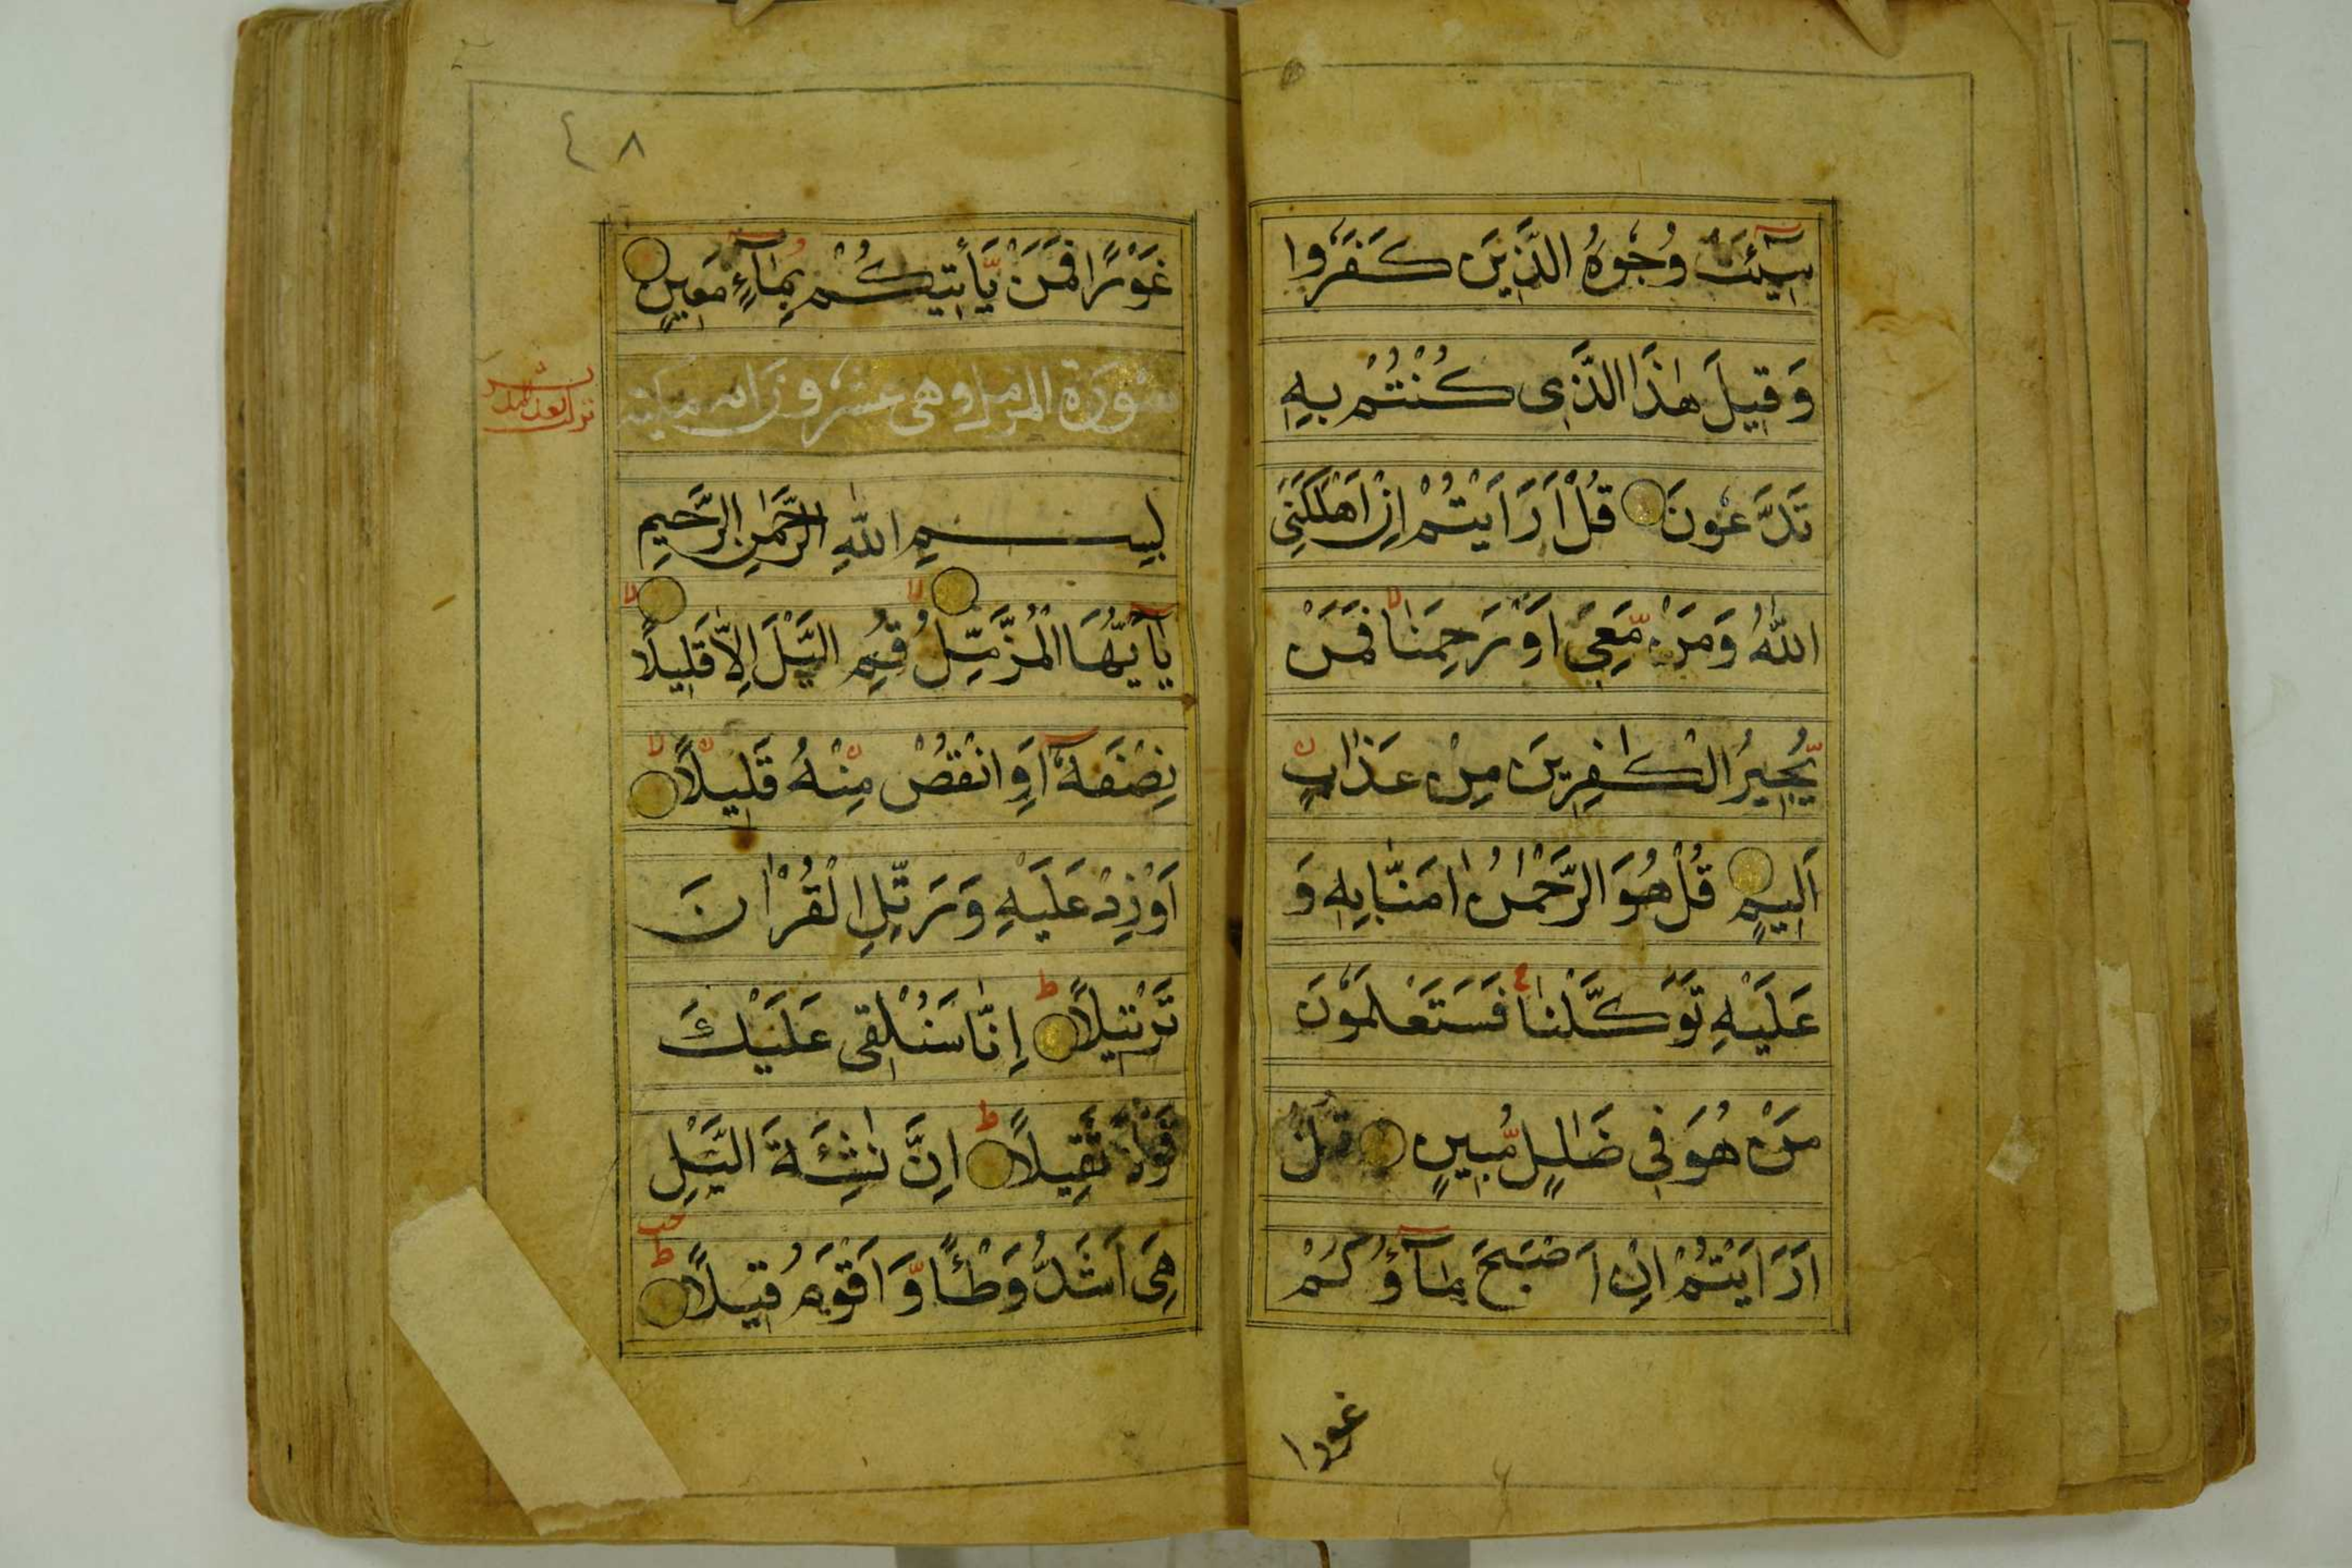 سِيْٓئَتْ وُجُوْهُ الَّذِيْنَ كَفَرُوْا
وَقِيْلَ هٰذَا الَّذِى كُنْتُمْ بِهٖ
تَدَّعُوْنَ قُلْ اَرَاَيْتُمْ اِنْ اَهْلَكَنِىَ
اللّٰهُ وَمَنْ مَّعِىَ اَوْ رَحِمَنَا فَمَنْ
يُّجِيْرُ الْكٰفِرِيْنَ مِنْ عَذَابٍ
اَلِيْمٍ قُلْ هُوَ الرَّحْمٰنُ اٰمَنَّا بِهٖ وَ
عَلَيْهِ تَوَكَّلْنَا فَسَتَعْلَمُوْنَ
مَنْ هُوَ فِى ضَلٰلٍ مُّبِيْنٍ قُلْ
اَرَاَيْتُمْ اِنْ اَصْبَحَ مَآؤُكُمْ
غورا
٤٨
غَوْرًا فَمَنْ يَّأْتِيْكُمْ بِمَآءٍ مَّعِيْنٍ
سورة المزمل وهى عشرون اية مكية
بِسْمِ اللّٰهِ الرَّحْمٰنِ الرَّحِيْمِ
يٰٓاَيُّهَا الْمُزَّمِّلُ قُمِ الَّيْلَ اِلَّا قَلِيْلًا
نِصْفَهٗٓ اَوِ انْقُصْ مِنْهُ قَلِيْلًا
اَوْ زِدْ عَلَيْهِ وَرَتِّلِ الْقُرْاٰنَ
تَرْتِيْلًا اِنَّا سَنُلْقِى عَلَيْكَ
قَوْلًا ثَقِيْلًا اِنَّ نَاشِئَةَ الَّيْلِ
هِىَ اَشَدُّ وَطْئًا وَّاَقْوَمُ قِيْلًا